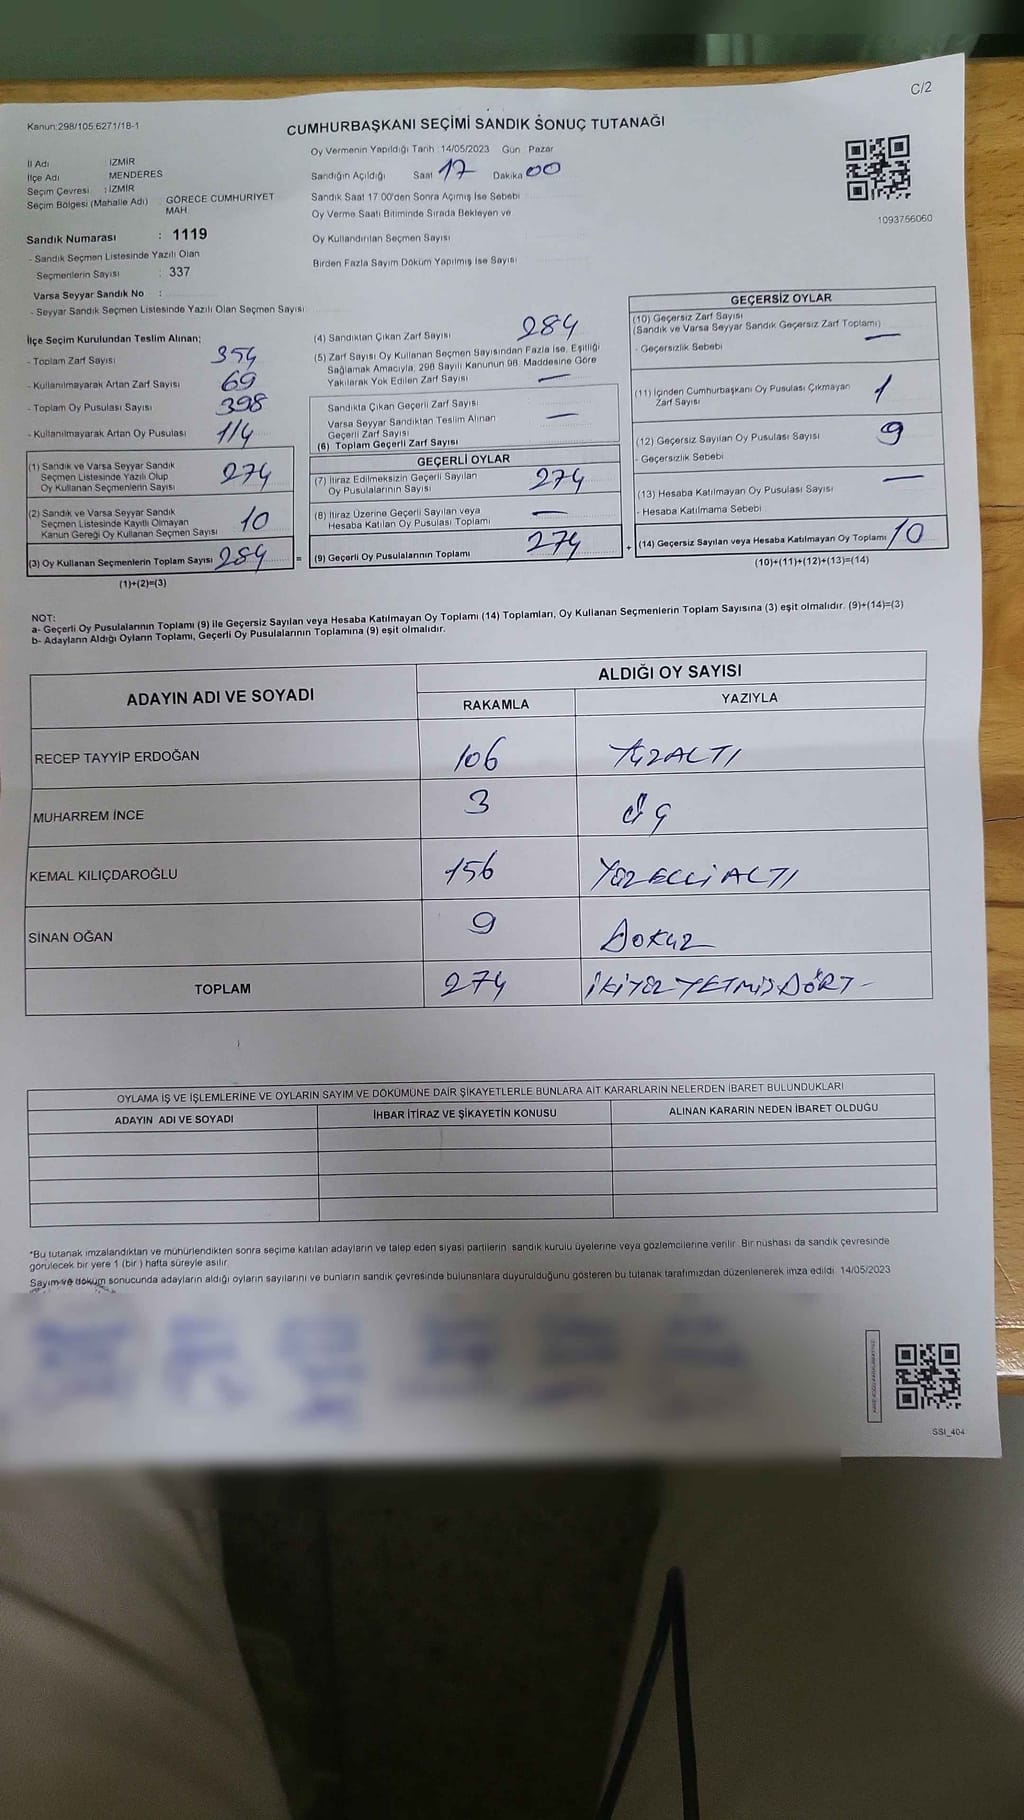 C/2
Kanun:298/105:6271/18-1
CUMHURBAŞKANI SEÇİMİ SANDIK SONUÇ TUTANAĞI
İl Adı İZMİR
İlçe Adı MENDERES
Seçim Çevresi : İZMİR
Seçim Bölgesi (Mahalle Adı) : GÖRECE CUMHURİYET
MAH
Sandık Numarası : 1119
- Sandık Seçmen Listesinde Yazılı Olan
Seçmenlerin Sayısı : 337
Varsa Seyyar Sandık No :
- Seyyar Sandık Seçmen Listesinde Yazılı Olan Seçmen Sayısı
Oy Vermenin Yapıldığı Tarih : 14/05/2023 Gün Pazar
Sandığın Açıldığı Saat 17 Dakika 00
Sandık Saat 17.00'den Sonra Açımış İse Sebebi
Oy Verme Saati Bitiminde Sırada Bekleyen ve
Oy Kullandırılan Seçmen Sayısı
Birden Fazla Sayım Döküm Yapılmış İse Sayısı
1093766060
İlçe Seçim Kurulundan Teslim Alınan;
- Toplam Zarf Sayısı 354
- Kullanılmayarak Artan Zarf Sayısı 69
- Toplam Oy Pusulası Sayısı 398
- Kullanılmayarak Artan Oy Pusulası 114
(1) Sandık ve Varsa Seyyar Sandık
Seçmen Listesinde Yazılı Olup
Oy Kullanan Seçmenlerin Sayısı 274
(2) Sandık ve Varsa Seyyar Sandık
Seçmen Listesinde Kayıtlı Olmayan
Kanun Gereği Oy Kullanan Seçmen Sayısı 10
(3) Oy Kullanan Seçmenlerin Toplam Sayısı 284 =
(1)+(2)=(3)
(4) Sandıktan Çıkan Zarf Sayısı 284
(5) Zarf Sayısı Oy Kullanan Seçmen Sayısından Fazla İse, Eşitliği
Sağlamak Amacıyla, 298 Sayılı Kanunun 98. Maddesine Göre
Yakılarak Yok Edilen Zarf Sayısı —
Sandıkta Çıkan Geçerli Zarf Sayısı
Varsa Seyyar Sandıktan Teslim Alınan —
Geçerli Zarf Sayısı
(6) Toplam Geçerli Zarf Sayısı
GEÇERLİ OYLAR
(7) İtiraz Edilmeksizin Geçerli Sayılan
Oy Pusulalarının Sayısı 274
(8) İtiraz Üzerine Geçerli Sayılan veya
Hesaba Katılan Oy Pusulası Toplamı —
(9) Geçerli Oy Pusulalarının Toplamı 274 +
GEÇERSİZ OYLAR
(10) Geçersiz Zarf Sayısı
(Sandık ve Varsa Seyyar Sandık Geçersiz Zarf Toplamı)
- Geçersizlik Sebebi —
(11) İçinden Cumhurbaşkanı Oy Pusulası Çıkmayan
Zarf Sayısı 1
(12) Geçersiz Sayılan Oy Pusulası Sayısı 9
- Geçersizlik Sebebi
(13) Hesaba Katılmayan Oy Pusulası Sayısı —
- Hesaba Katılmama Sebebi
(14) Geçersiz Sayılan veya Hesaba Katılmayan Oy Toplamı 10
(10)+(11)+(12)+(13)=(14)
NOT:
a- Geçerli Oy Pusulalarının Toplamı (9) ile Geçersiz Sayılan veya Hesaba Katılmayan Oy Toplamı (14) Toplamları, Oy Kullanan Seçmenlerin Toplam Sayısına (3) eşit olmalıdır. (9)+(14)=(3)
b- Adayların Aldığı Oyların Toplamı, Geçerli Oy Pusulalarının Toplamına (9) eşit olmalıdır.
ADAYIN ADI VE SOYADI ALDIĞI OY SAYISI
RAKAMLA YAZIYLA
RECEP TAYYİP ERDOĞAN 106 YÜZALTI
MUHARREM İNCE 3 ÜÇ
KEMAL KILIÇDAROĞLU 156 YÜZELLİALTI
SİNAN OĞAN 9 DOKUZ
TOPLAM 274 İKİYÜZYETMİŞDÖRT-
OYLAMA İŞ VE İŞLEMLERİNE VE OYLARIN SAYIM VE DÖKÜMÜNE DAİR ŞİKAYETLERLE BUNLARA AİT KARARLARIN NELERDEN İBARET BULUNDUKLARI
ADAYIN ADI VE SOYADI İHBAR İTİRAZ VE ŞİKAYETİN KONUSU ALINAN KARARIN NEDEN İBARET OLDUĞU
*Bu tutanak imzalandıktan ve mühürlendikten sonra seçime katılan adayların ve talep eden siyasi partilerin sandık kurulu üyelerine veya gözlemcilerine verilir. Bir nüshası da sandık çevresinde
görülecek bir yere 1 (bir ) hafta süreyle asılır.
Sayım ve döküm sonucunda adayların aldığı oyların sayılarını ve bunların sandık çevresinde bulunanlara duyurulduğunu gösteren bu tutanak tarafımızdan düzenlenerek imza edildi. 14/05/2023
SSI_404